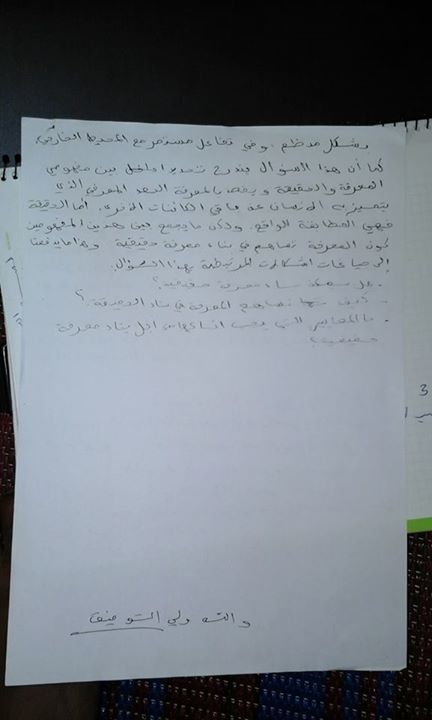 بشكل منظم. وفي تفاعل مستمر مع المحيط الخارجي.
كما أن هذا السؤال يندرج تحديدا داخل بين مفهومي
المعرفة والحقيقة ويقصد بالمعرفة البعد المعرفي الذي
يتميز به الإنسان عن باقي الكائنات الأخرى. أما الحقيقة
فهي المطابقة للواقع. ولكن ما يجمع بين هذين المفهومين
كون المعرفة تساهم في بناء معرفة حقيقية وهذا ما يدفعنا
إلى صياغات اشكالات المرتبطة بهذا السؤال.
- هل يمكننا بناء معرفة حقيقية؟
- كيف تساهم المعرفة في بناء الحقيقة؟
- ما المعايير التي يجب اتباعها من اجل بناء معرفة
حقيقية؟
والله ولي التوفيق
3